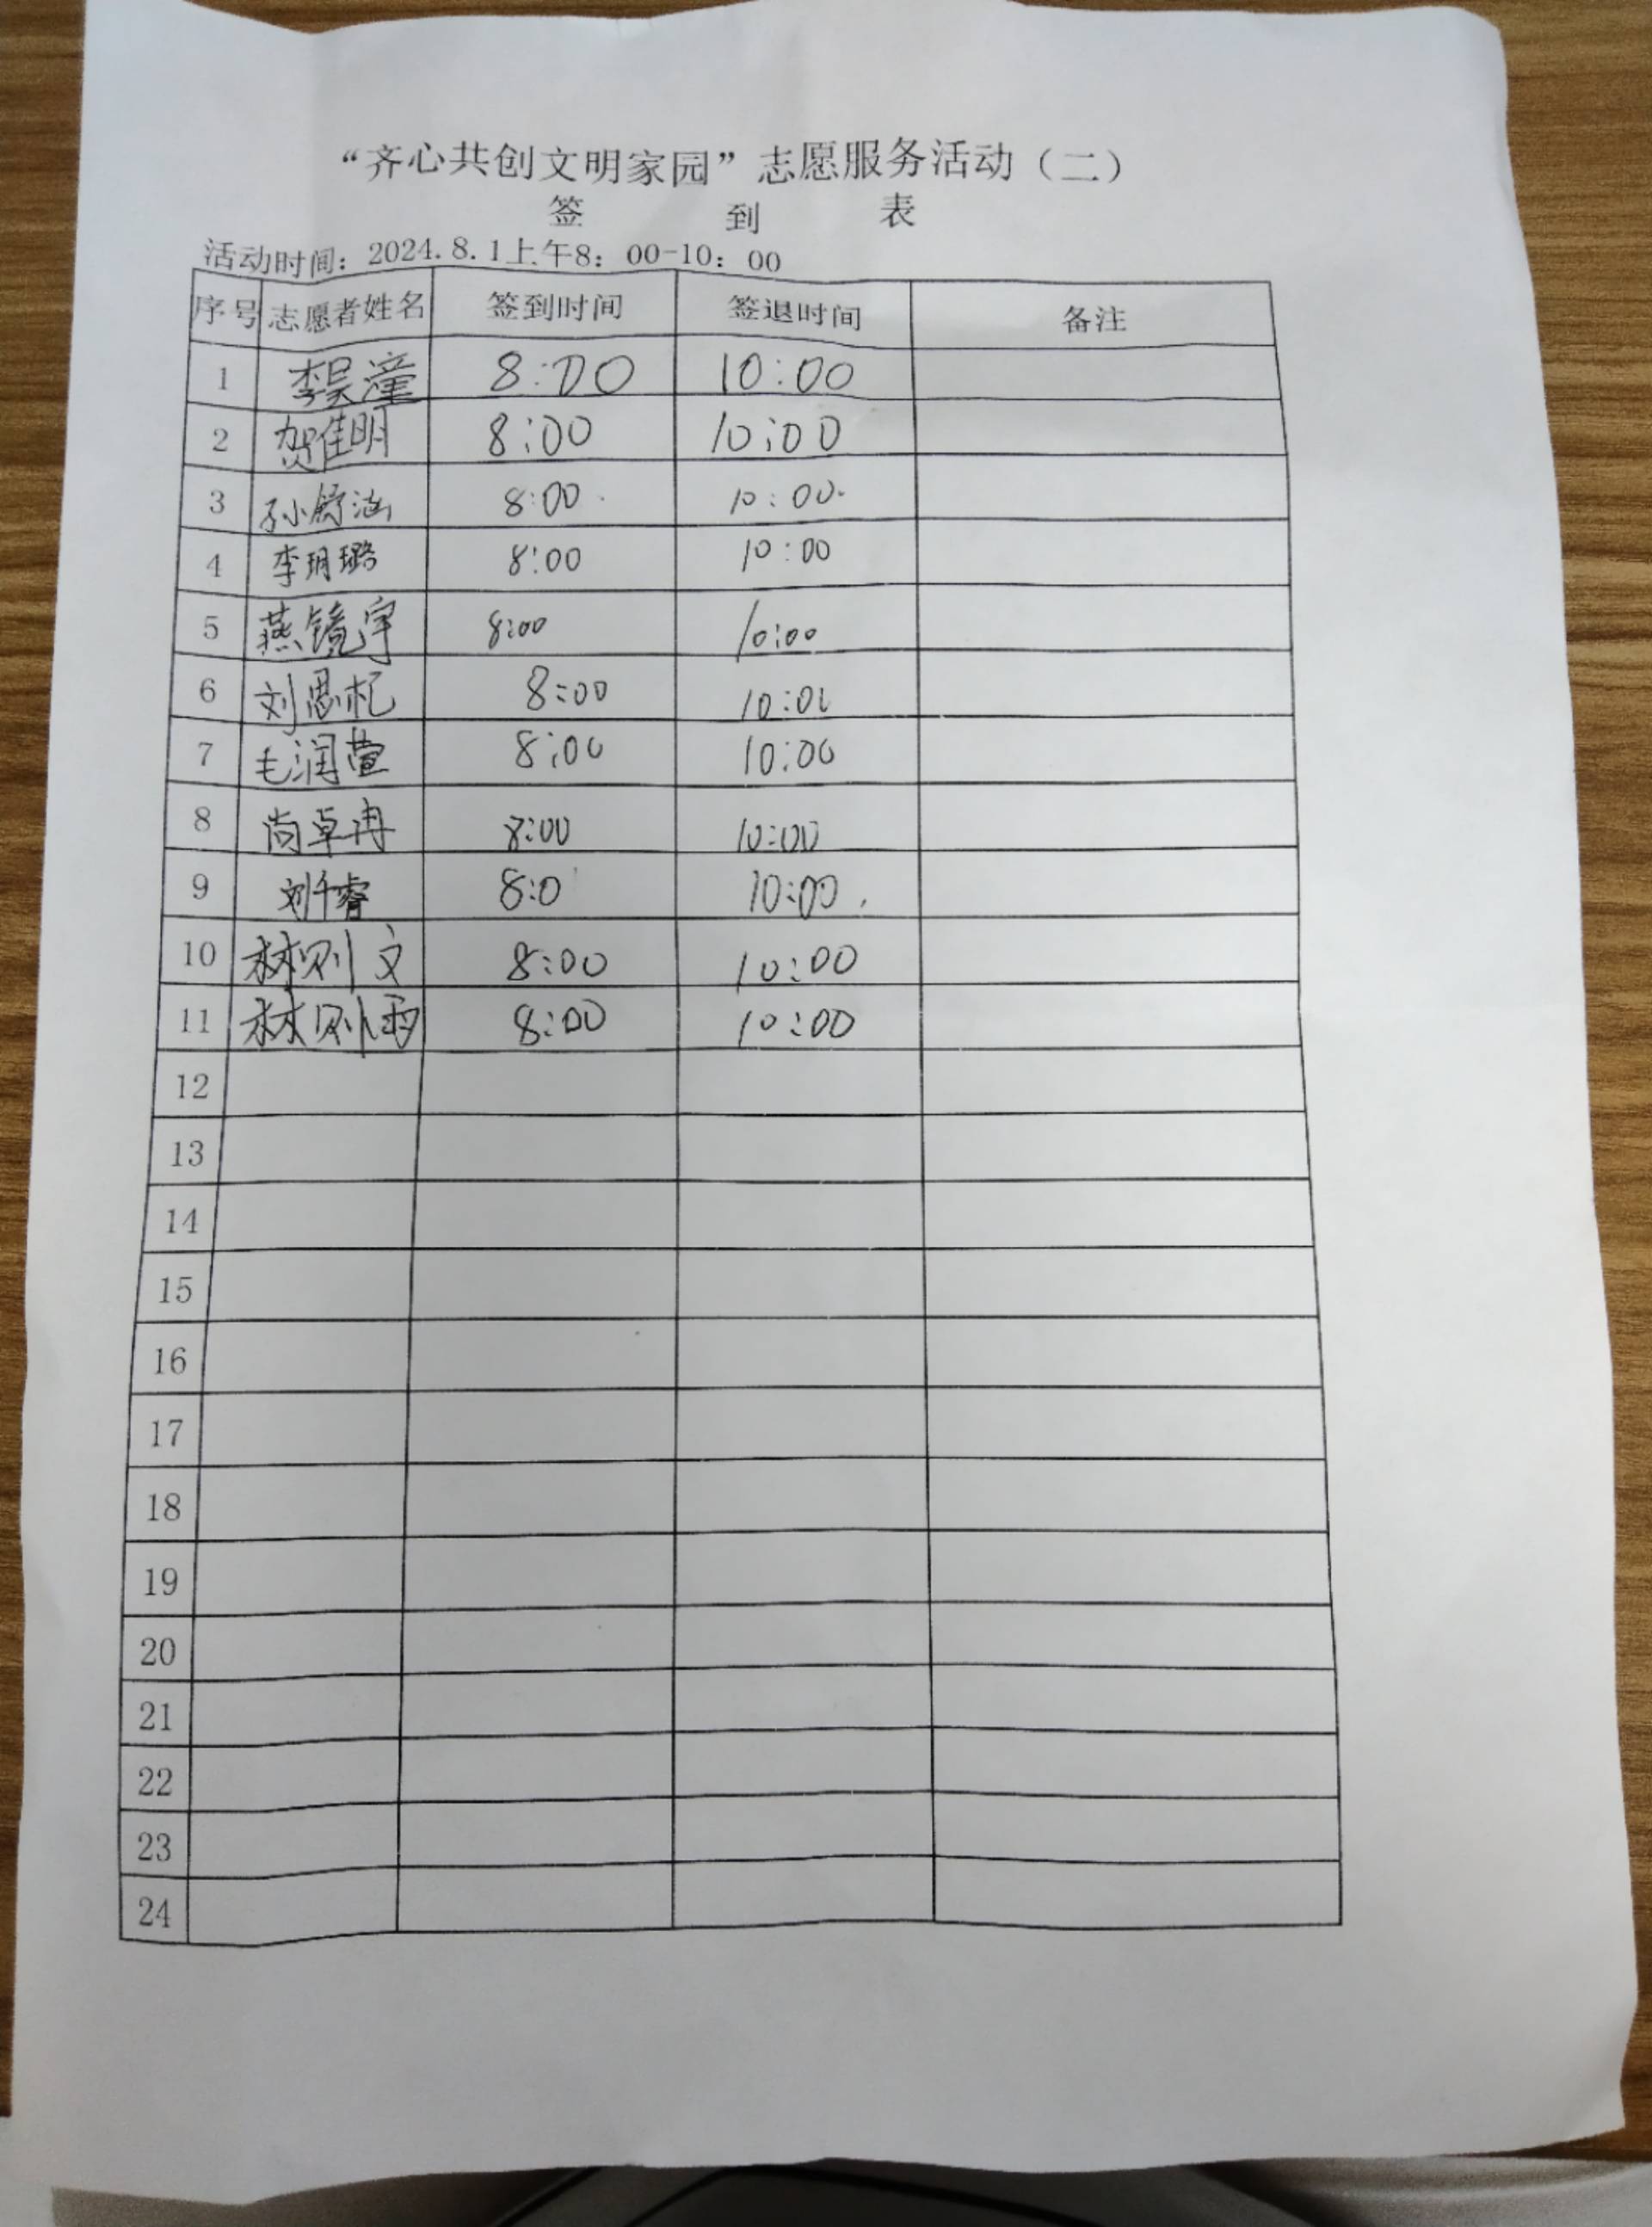 “齐心共创文明家园”志愿服务活动（二）
签 到 表
活动时间：2024.8.1上午8：00-10：00
序号 志愿者姓名 签到时间 签退时间 备注
1 李昊潼 8:00 10:00
2 贺佳明 8:00 10:00
3 孙舒涵 8:00 10:00
4 李玥璐 8:00 10:00
5 燕镜宇 8:00 10:00
6 刘恩杞 8:00 10:00
7 毛润萱 8:00 10:00
8 尚卓冉 8:00 10:00
9 刘千睿 8:0 10:00
10 林则文 8:00 10:00
11 林则雨 8:00 10:00
12
13
14
15
16
17
18
19
20
21
22
23
24